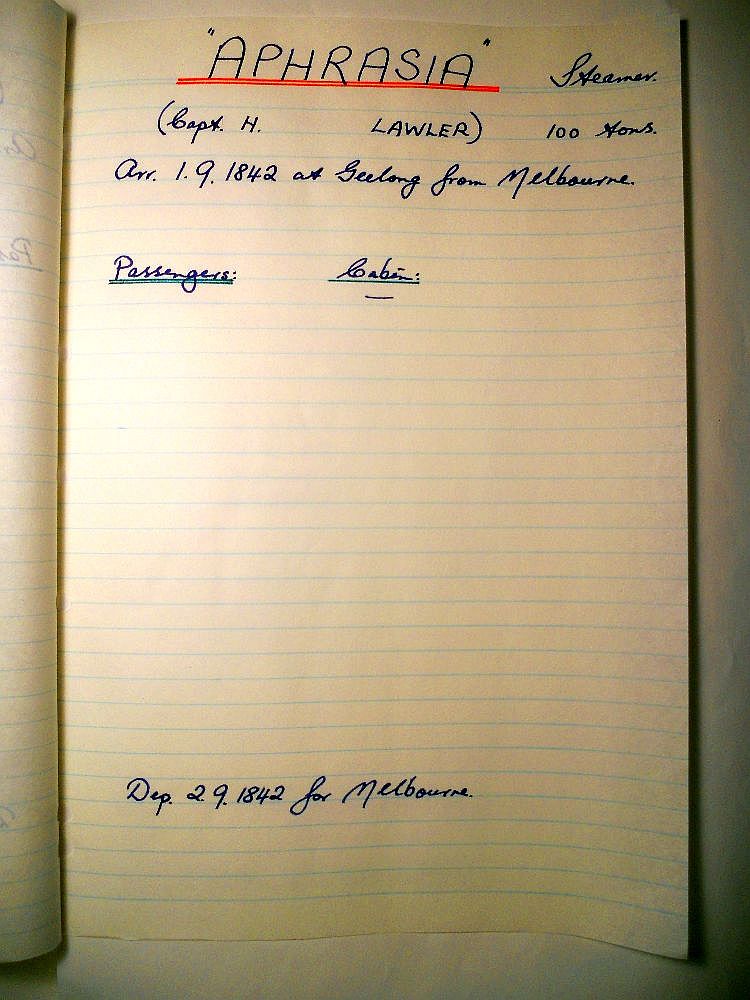 "APHRASIA" Steamer.
(Capt. H. LAWLER) 100 tons.
Arr. 1.9.1842 at Geelong from Melbourne.
Passengers: Cabin:
—
Dep. 2.9.1842 for Melbourne.